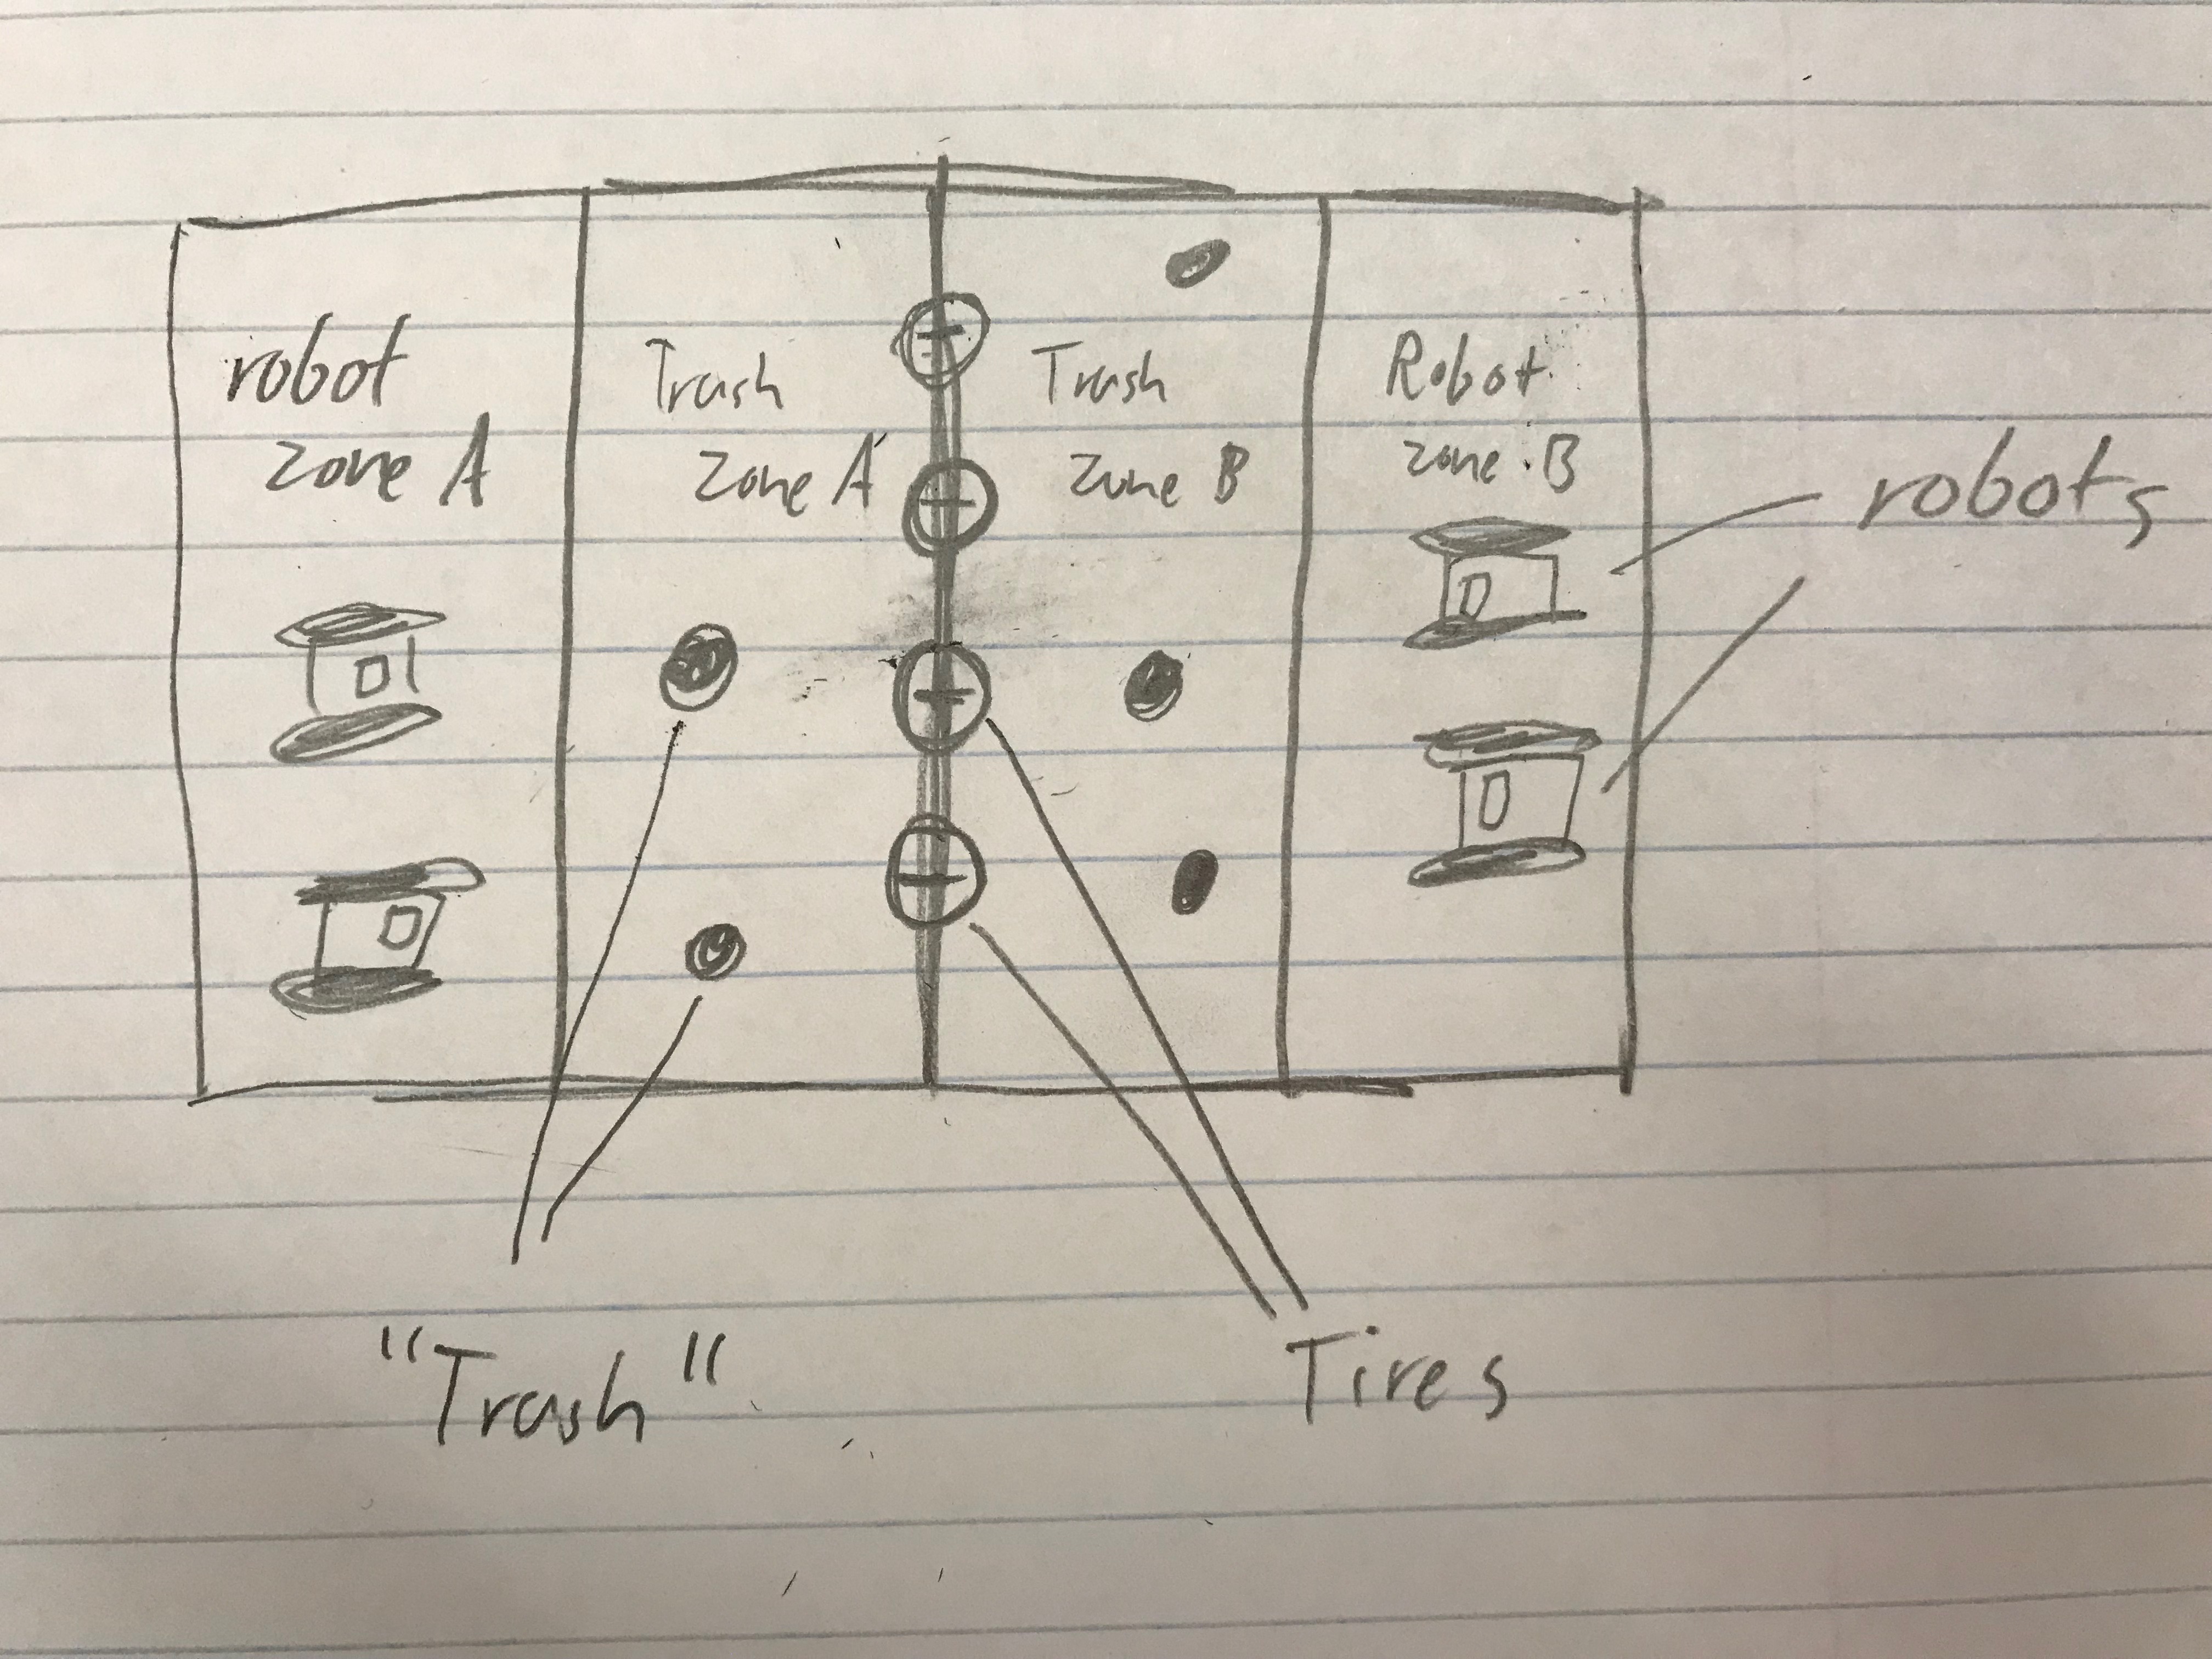 robot
zone A
Trash
zone A
Trash
zone B
Robot
zone B
robots
"Trash"
Tires